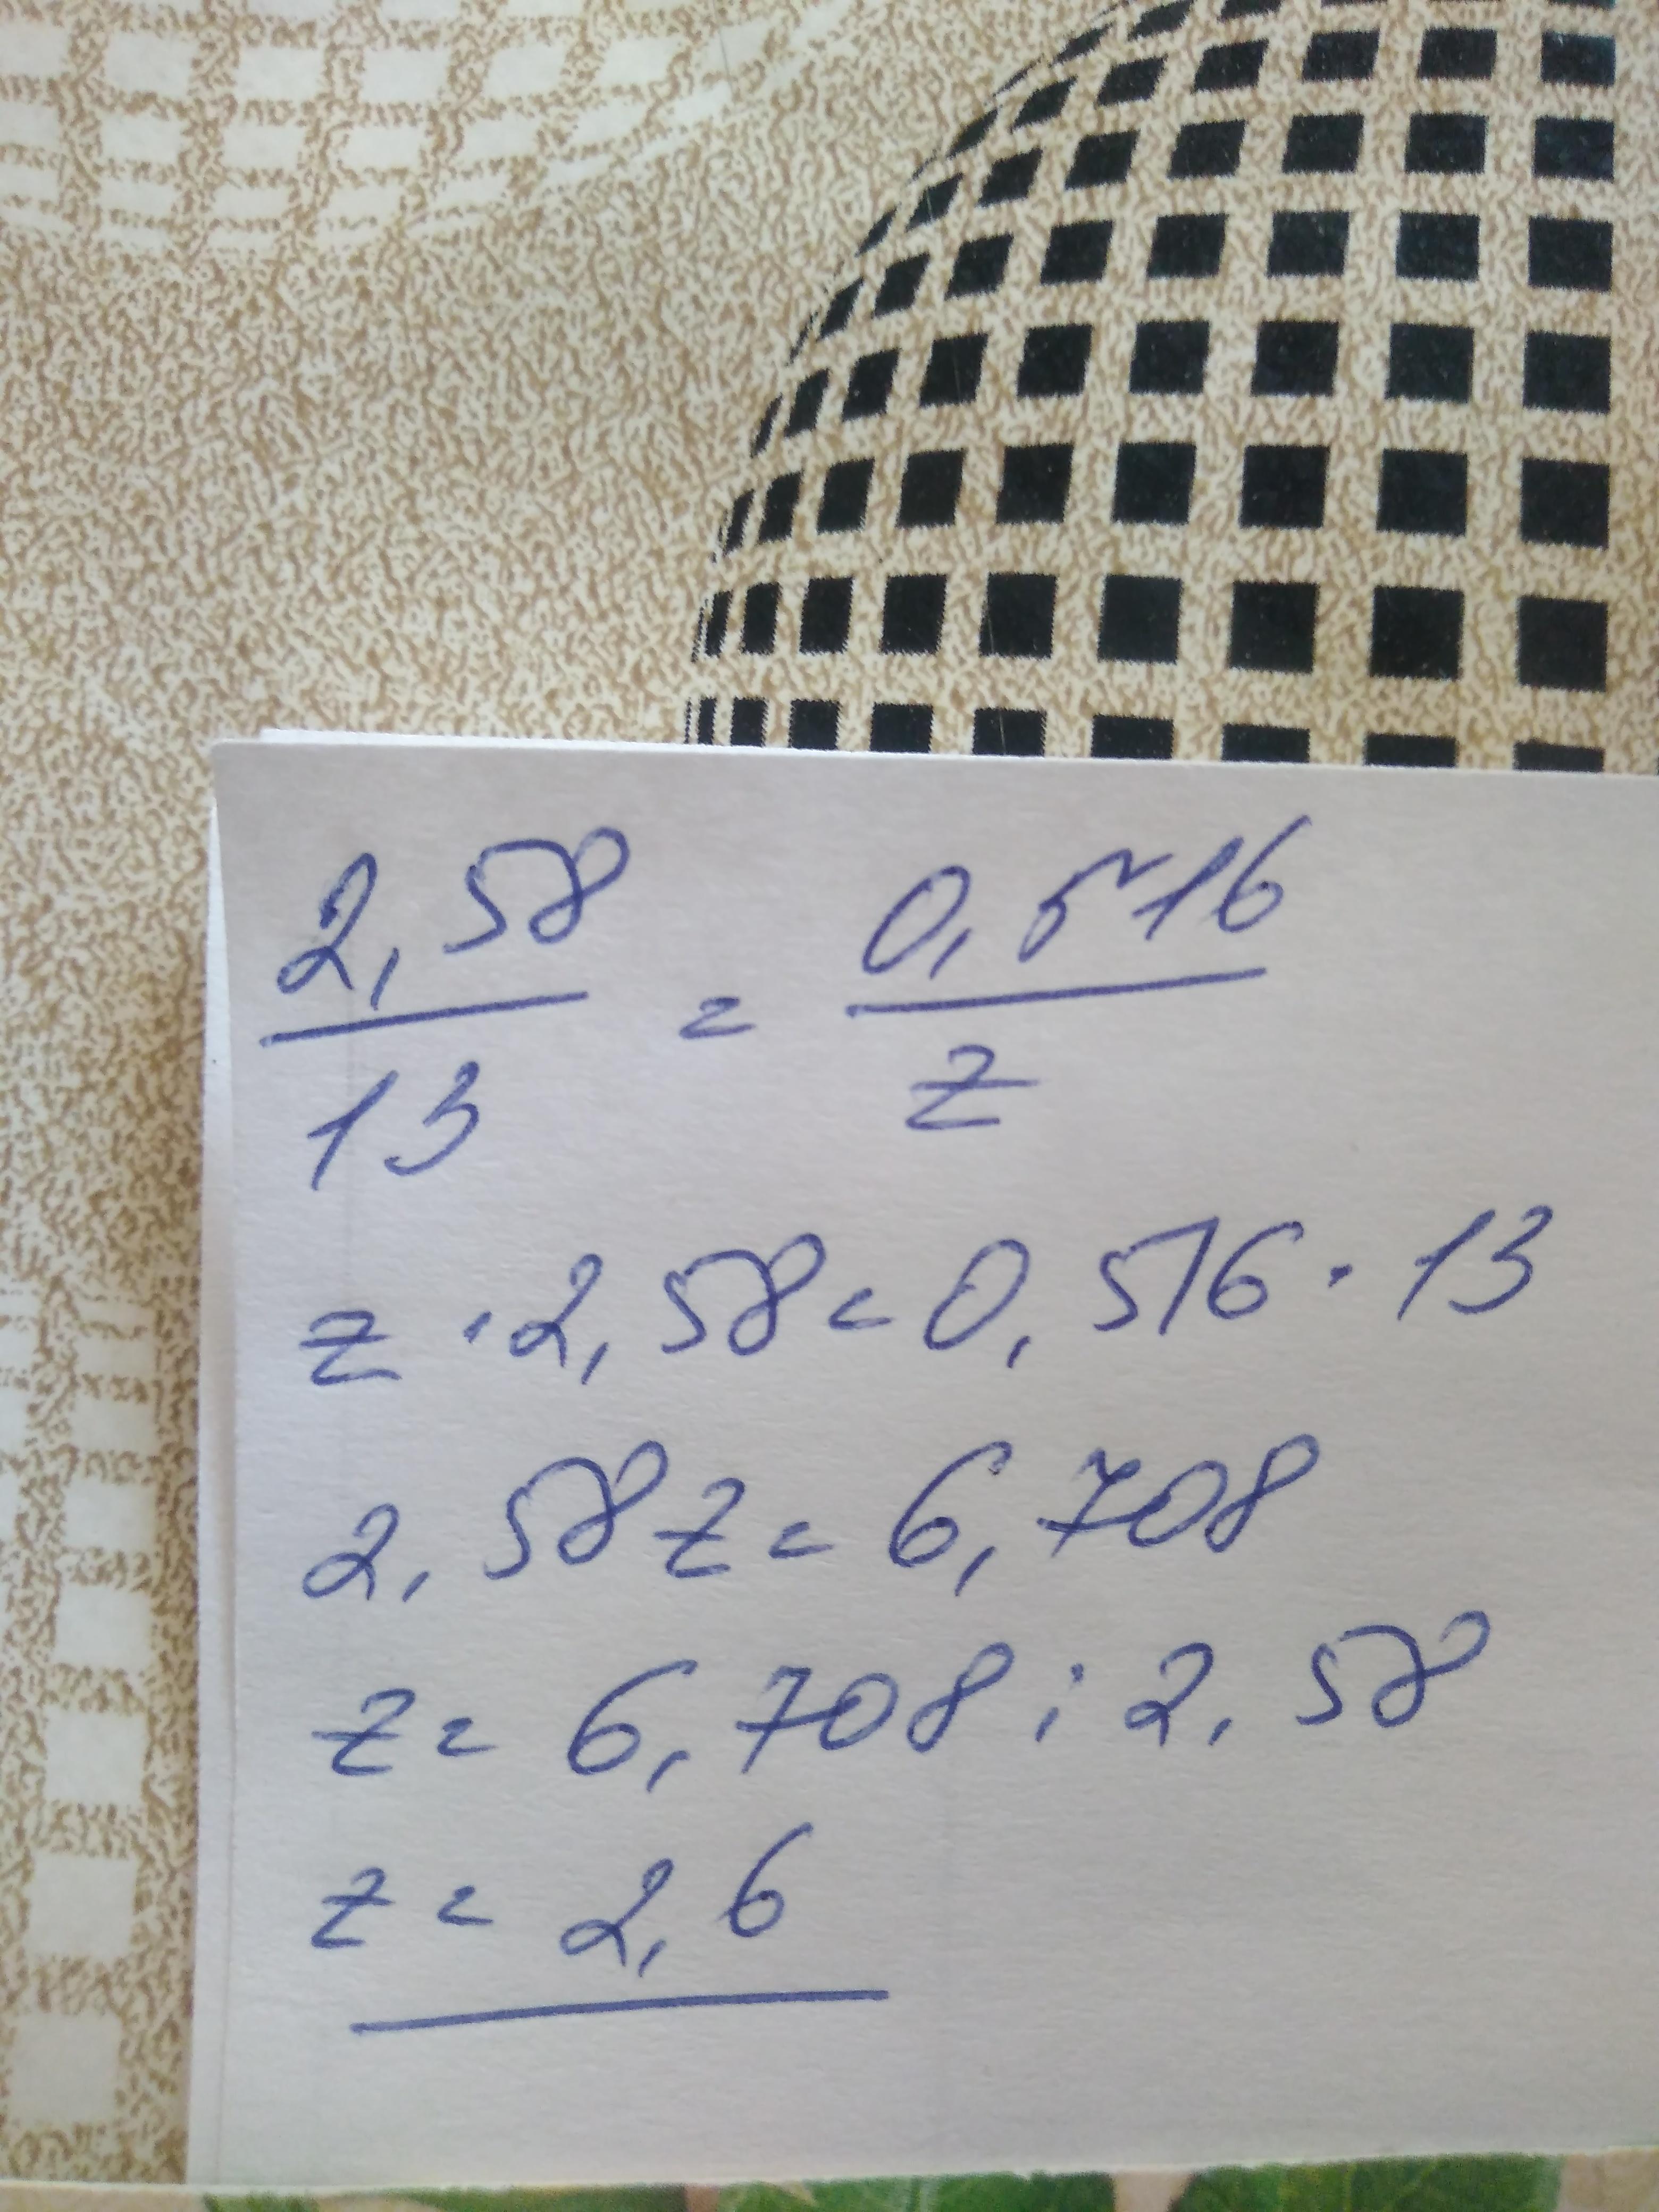 2,58 / 13 = 0,516 / z
z · 2,58 = 0,516 · 13
2,58z = 6,708
z = 6,708 : 2,58
z = 2,6